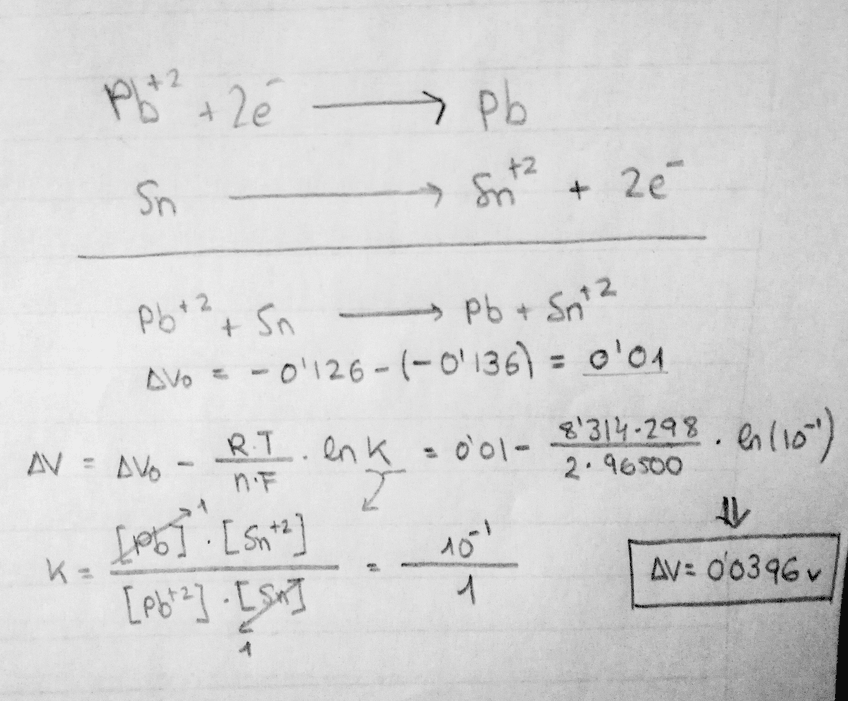 Pb⁺² + 2e⁻ → Pb
Sn → Sn⁺² + 2e⁻
Pb⁺² + Sn → Pb + Sn⁺²
ΔV₀ = -0'126 - (-0'136) = 0'01
ΔV = ΔV₀ - R.T / n.F · ln K = 0'01 - 8'314·298 / 2·96500 · ln(10⁻¹)
K = [Pb]¹ · [Sn⁺²] / [Pb⁺²] · [Sn] = 10⁻¹ / 1 ⇓ ΔV = 0'0396 v
1